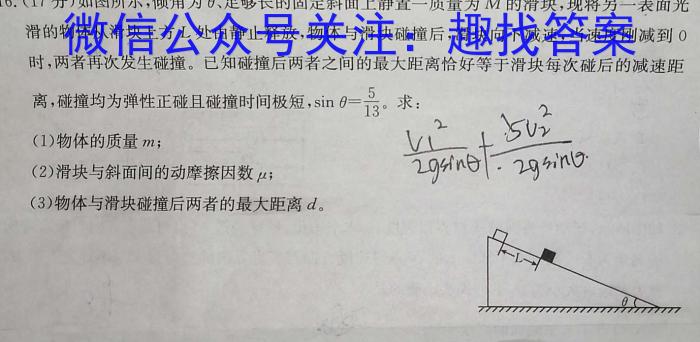 16.(17分)如图所示,倾角为θ、足够长的固定斜面上静置一质量为M的滑块,现将另一表面光
滑的物体从滑块上方L处由静止释放,物体与滑块碰撞后,滑块向下减速,当速度刚减到0
微信公众号关注：趣找答案
时,两者再次发生碰撞。已知碰撞后两者之间的最大距离恰好等于滑块每次碰后的减速距
离,碰撞均为弹性正碰且碰撞时间极短,sin θ=5/13。求:
(1)物体的质量m;
(2)滑块与斜面间的动摩擦因数μ;
(3)物体与滑块碰撞后两者的最大距离d。
V₁²/2gsinθ + 5V₂²/2gsinθ.
L
θ